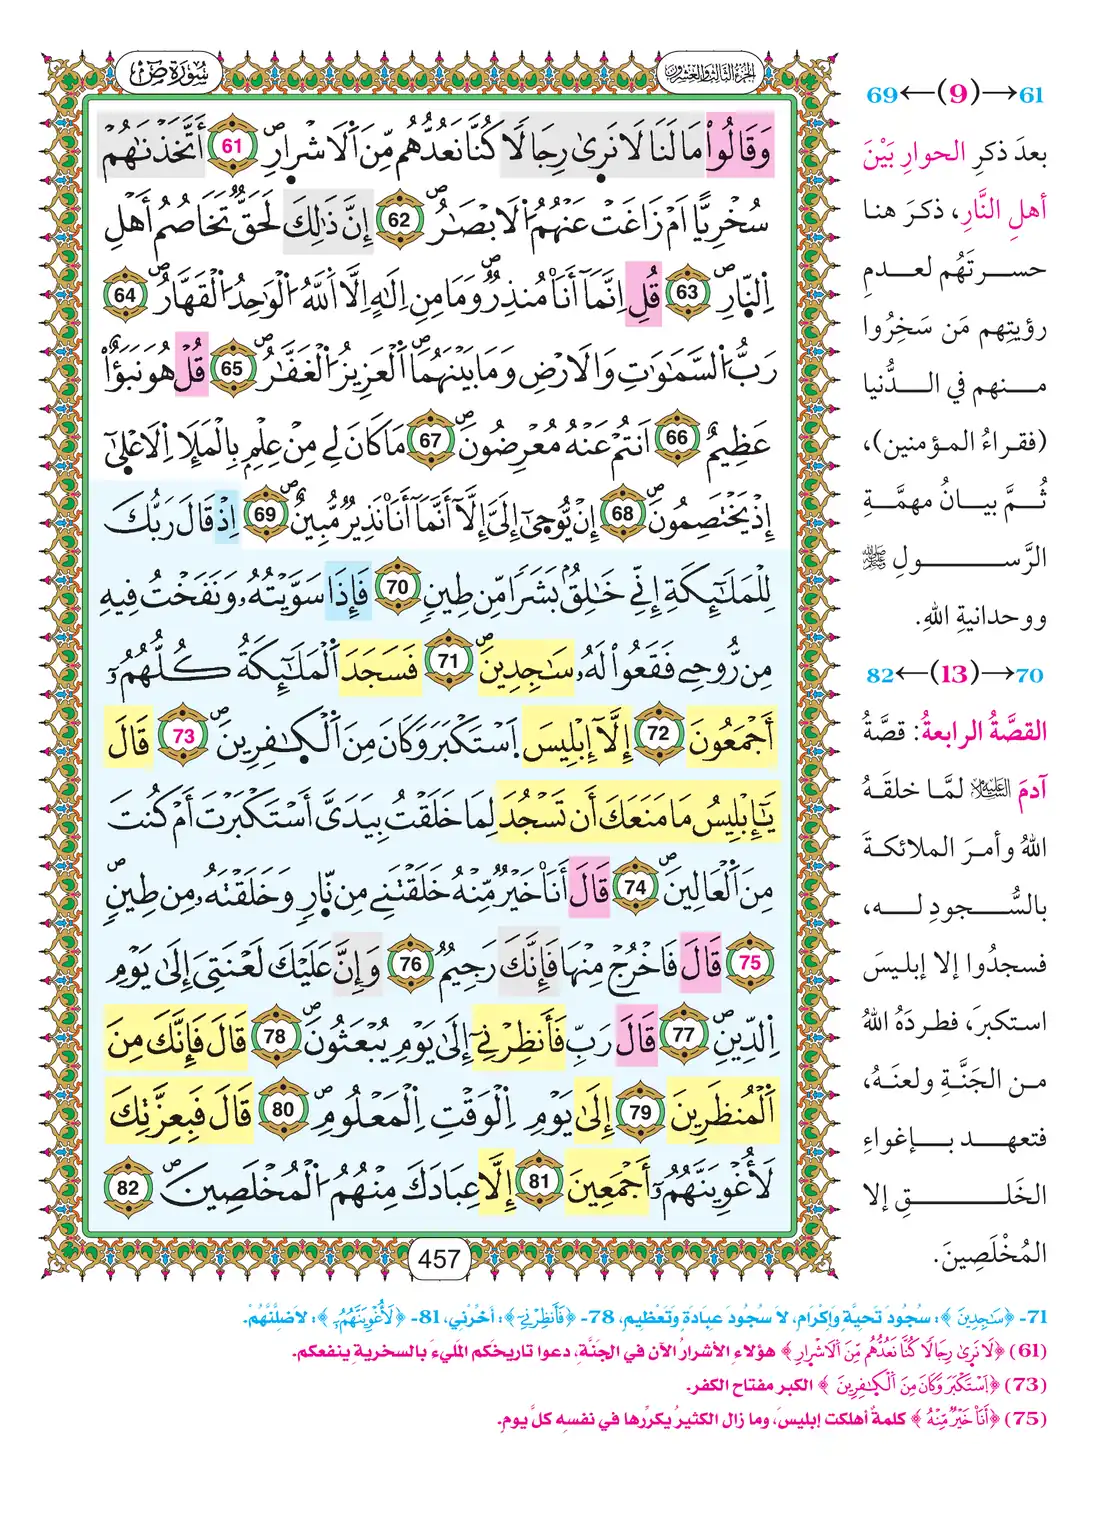 سُورَةُ صٓ
الجزء الثالث والعشرون
وَقَالُواْ مَا لَنَا لَا نَرَىٰ رِجَالًا كُنَّا نَعُدُّهُم مِّنَ اَ۬لَاشْرِارِۖ 61 أَتَّخَذْنَٰهُمْ
سُخْرِيًّا اَمْ زَاغَتْ عَنْهُمُ اُ۬لَابْصَٰرُۖ 62 إِنَّ ذَٰلِكَ لَحَقّٞ تَخَاصُمُ أَهْلِ
اِ۬لنّ۪ارِۖ 63 قُلِ اِنَّمَآ أَنَا۠ مُنذِرٞۖ وَمَا مِنِ اِلَٰهٍ اِلَّا اَ۬للَّهُ اُ۬لْوَٰحِدُ اُ۬لْقَهَّارُۖ 64
رَبُّ اُ۬لسَّمَٰوَٰتِ وَالَارْضِ وَمَا بَيْنَهُمَا اَ۬لْعَزِيزُ اُ۬لْغَفَّٰرُۖ 65 قُلْ هُوَ نَبَؤٌاْ
عَظِيمٌ 66 اَنتُمْ عَنْهُ مُعْرِضُونَۖ 67 مَا كَانَ لِي مِنْ عِلْمِۢ بِالْمَلَإِ اِ۬لَاعْل۪يٰٓ
إِذْ يَخْتَصِمُونَۖ 68 إِنْ يُّوح۪يٰٓ إِلَيَّ إِلَّآ أَنَّمَآ أَنَا۠ نَذِيرٞ مُّبِينٌۖ 69 اِذْ قَالَ رَبُّكَ
لِلْمَلَٰٓئِكَةِ إِنِّي خَٰلِقُۢ بَشَراٗ مِّن طِينٖ 70 فَإِذَا سَوَّيْتُهُۥ وَنَفَخْتُ فِيهِ
مِن رُّوحِي فَقَعُواْ لَهُۥ سَٰجِدِينَۖ 71 فَسَجَدَ اَ۬لْمَلَٰٓئِكَةُ كُلُّهُمُۥٓ
أَجْمَعُونَ 72 إِلَّآ إِبْلِيسَ اَ۪سْتَكْبَرَ وَكَانَ مِنَ اَ۬لْكٰ۪فِرِينَۖ 73 قَالَ
يَٰٓإِبْلِيسُ مَا مَنَعَكَ أَن تَسْجُدَ لِمَا خَلَقْتُ بِيَدَيَّ أَسْتَكْبَرْتَ أَمْ كُنتَ
مِنَ اَ۬لْعَالِينَۖ 74 قَالَ أَنَا۠ خَيْرٞ مِّنْهُ خَلَقْتَنِي مِن نّ۪ارٖ وَخَلَقْتَهُۥ مِن طِينٖۖ
75 قَالَ فَاخْرُجْ مِنْهَا فَإِنَّكَ رَجِيمٞ 76 وَإِنَّ عَلَيْكَ لَعْنَتِيَ إِلَىٰ يَوْمِ
اِ۬لدِّينِۖ 77 قَالَ رَبِّ فَأَنظِرْنِيٓ إِلَىٰ يَوْمِ يُبْعَثُونَۖ 78 قَالَ فَإِنَّكَ مِنَ
اَ۬لْمُنظَرِينَ 79 إِلَىٰ يَوْمِ اِ۬لْوَقْتِ اِ۬لْمَعْلُومِۖ 80 قَالَ فَبِعِزَّتِكَ
لَأُغْوِيَنَّهُمُۥٓ أَجْمَعِينَ 81 إِلَّا عِبَادَكَ مِنْهُمُ اُ۬لْمُخْلَصِينَۖ 82
457
61→(9)←69
بعدَ ذكرِ الحوارِ بَيْنَ
أهلِ النَّارِ، ذكرَ هنا
حسرتَهُم لعدمِ
رؤيتِهم مَن سَخِرُوا
منهم في الدُّنيا
(فقراءُ المؤمنين)،
ثُمَّ بيانُ مهمَّةِ
الرَّسولِ ﷺ
ووحدانيةِ اللهِ.
70→(13)←82
القصَّةُ الرابعةُ: قصَّةُ
آدمَ عليه السلام لمَّا خلقَهُ
اللهُ وأمرَ الملائكةَ
بالسُّجودِ له،
فسجدُوا إلا إبليسَ
استكبرَ، فطردَهُ اللهُ
من الجَنَّةِ ولعنَهُ،
فتعهد بإغواءِ
الخَلقِ إلا
المُخْلَصِينَ.
71- ﴿سَٰجِدِينَ﴾: سُجُودَ تَحيَّةٍ وَإكْرَامٍ، لَا سُجُودَ عِبَادَةٍ وَتَعْظِيمٍ، 78- ﴿فَأَنظِرْنِيٓ﴾: أخِّرْنِي، 81- ﴿لَأُغْوِيَنَّهُمُۥٓ﴾: لأضِلَّنَّهُمْ.
(61) ﴿لَا نَرَىٰ رِجَالًا كُنَّا نَعُدُّهُم مِّنَ اَ۬لَاشْرِارِ﴾ هؤلاءِ الأشرارُ الآن في الجنَّةِ، دعوا تاريخَكم المليءَ بالسخريةِ ينفعكم.
(73) ﴿اِ۪سْتَكْبَرَ وَكَانَ مِنَ اَ۬لْكٰ۪فِرِينَ﴾ الكبر مفتاح الكفر.
(75) ﴿أَنَا۠ خَيْرٞ مِّنْهُ﴾ كلمةٌ أهلكت إبليسَ، وما زال الكثيرُ يكرِّرها في نفسِه كلَّ يوم.